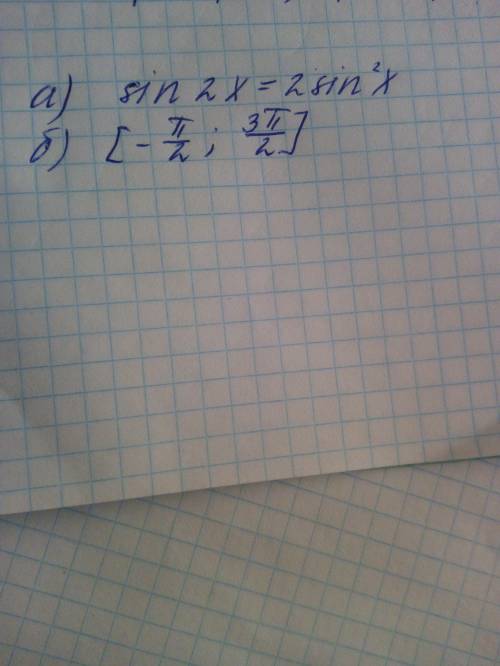 а) sin 2x = 2sin²x
б) [-π/2; 3π/2]